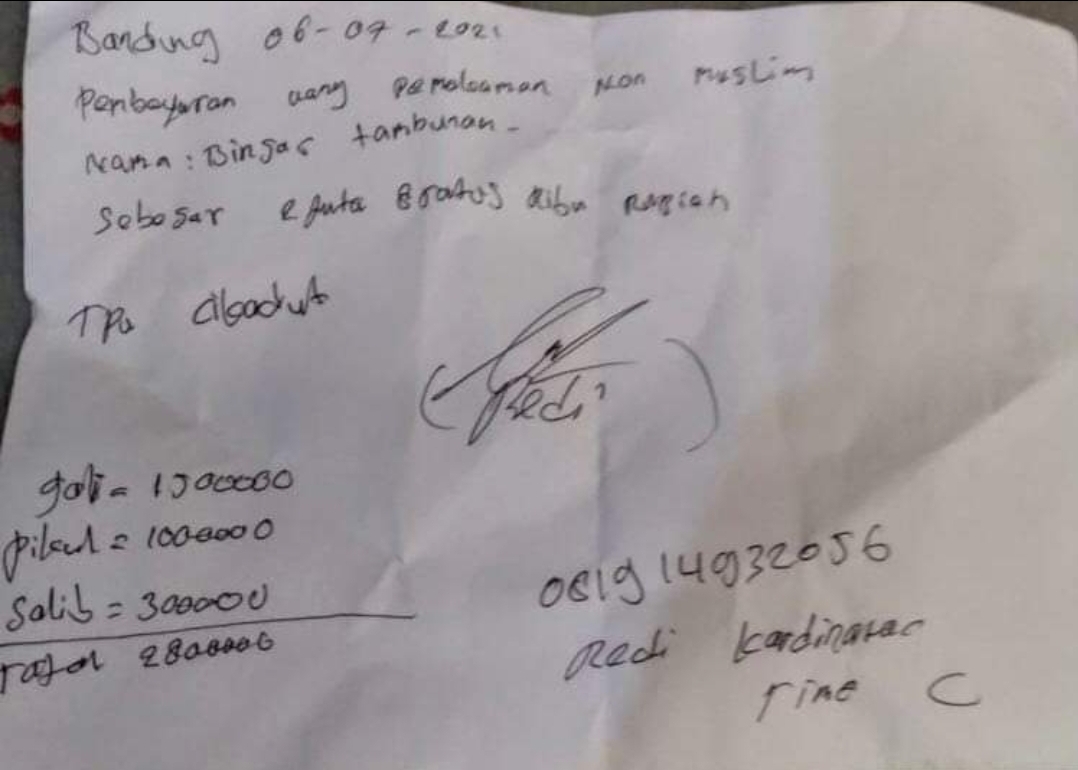 Bandung 06-07-2021
Penbayaran uang pemakaman Non Muslim
Nama : Binsar tambunan -
Sebesar 2 juta 8 ratus Ribu Rupiah
TPU Cikadut
(Redi)
gali = 1500000
pikul = 1000000
Salib = 300000
Total 2800000
081914932056
Redi Kordinator
Time C